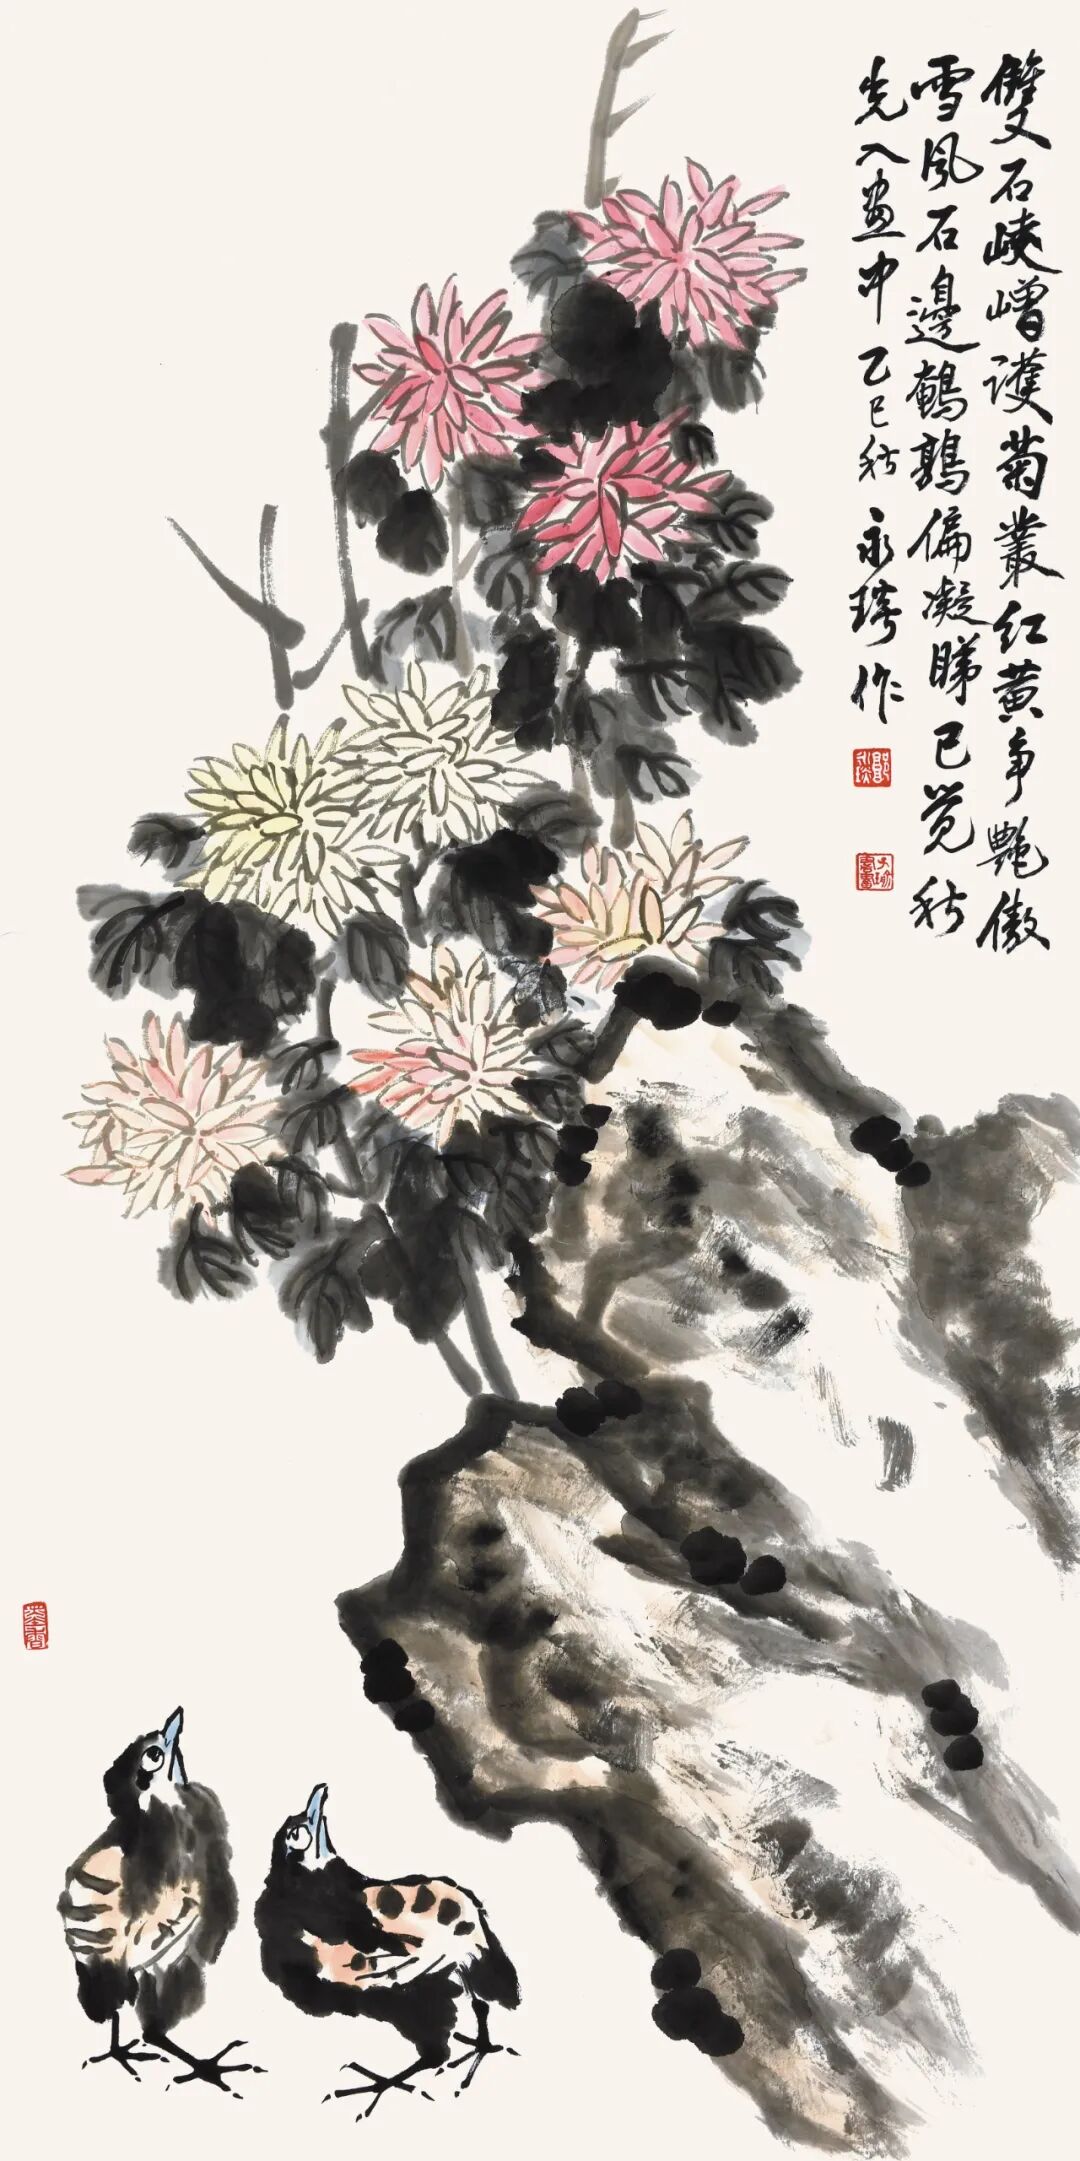 雙石崚嶒護菊叢红黄争艷傲
雪風石邊鵪鶉偏凝睇已覺秋
光入畫中 乙巳秋 永 作